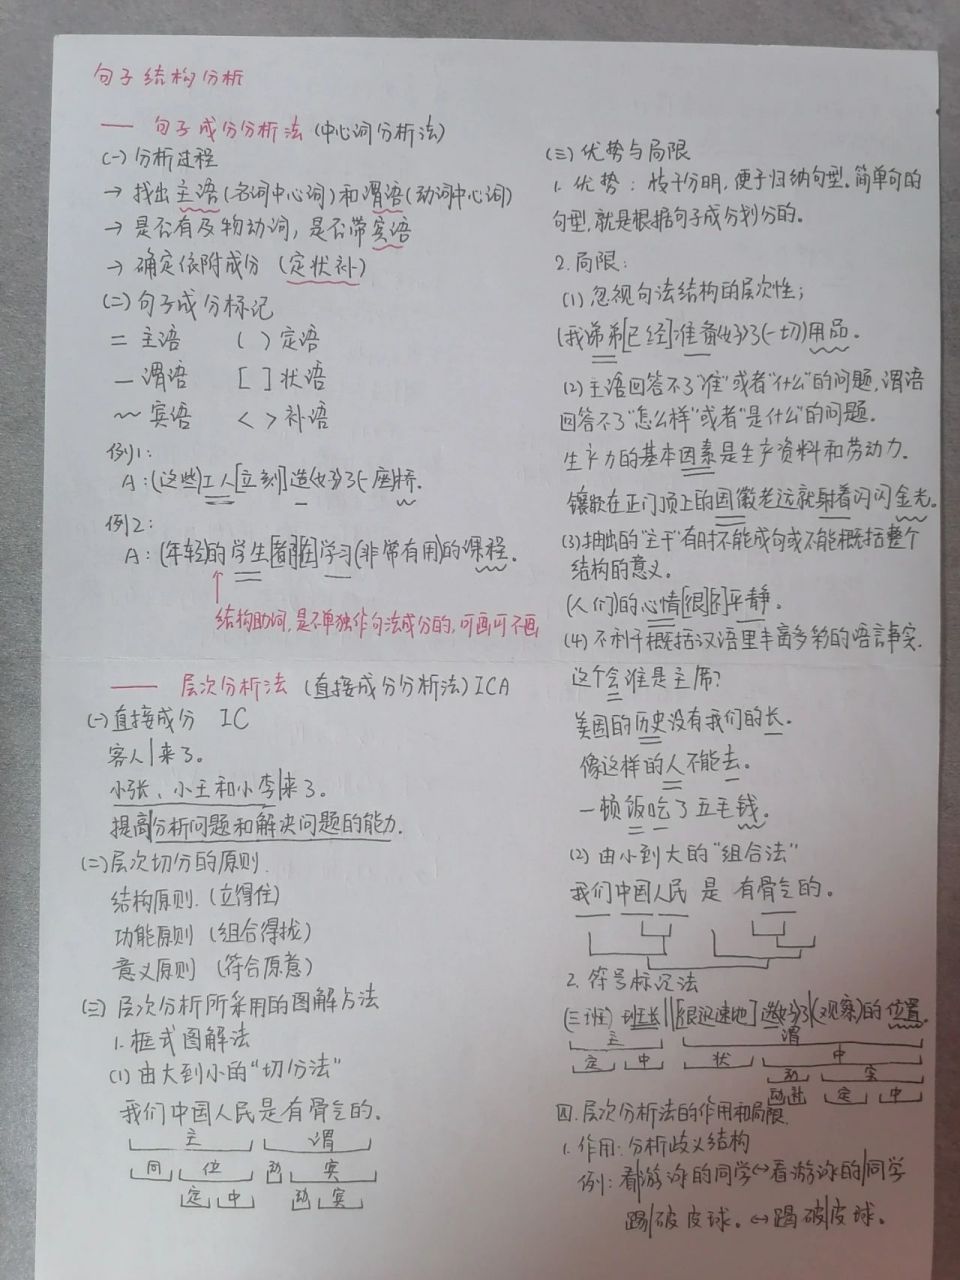 句子结构分析
一 句子成分分析法 (中心词分析法)
(一) 分析过程
→ 找出主语(名词中心词)和谓语(动词中心词)
→ 是否有及物动词，是否带宾语
→ 确定依附成分 (定状补)
(二) 句子成分标记
= 主语 ( ) 定语
— 谓语 [ ] 状语
~~ 宾语 < > 补语
例1:
A:(这些)工人[立刻]造<好>了(一座)桥.
例2:
A:(年轻)的学生[都][在]学习(非常有用)的课程.
↑
结构助词，是不单独作句法成分的，可画可不画
二 层次分析法 (直接成分分析法) ICA
(一) 直接成分 IC
客人|来了。
小张、小王和小李|来了。
提高|分析问题和解决问题的能力.
(二) 层次切分的原则.
结构原则.(立得住)
功能原则 (组合得拢)
意义原则 (符合原意)
(三) 层次分析所采用的图解方法
1.框式图解法
(1) 由大到小的“切分法”
我们中国人民是有骨气的.
主 谓
同 位 动 宾
定 中 动 宾
(三) 优势与局限
1. 优势: 枝干分明，便于归纳句型。简单句的
句型，就是根据句子成分划分的.
2.局限:
(1) 忽视句法结构的层次性；
(我)弟弟[已经]准备<好>了(一切)用品.
(2) 主语回答不了“谁”或者“什么”的问题，谓语
回答不了“怎么样”或者“是什么”的问题.
生产力的基本因素是生产资料和劳动力.
镶嵌在正门顶上的国徽老远就射着闪闪金光.
(3) 抽出的“主干”有时不能成句或不能概括整个
结构的意义.
(人们)的心情[很][不]平静.
(4) 不利于概括汉语里丰富多彩的语言事实.
这个会谁是主席?
美国的历史没有我们的长.
像这样的人不能去.
一顿饭吃了五毛钱.
(2) 由小到大的“组合法”
我们中国人民 是 有骨气的.
2. 符号标记法
(三班) 班长||[很迅速地] 选<好>了(观察)的位置.
主 谓
定 中 状 中
动 宾
动 补 定 中
四.层次分析法的作用和局限.
1.作用:分析歧义结构
例: 看|游泳的同学↔看游泳的|同学
踢|破皮球。↔踢破|皮球。